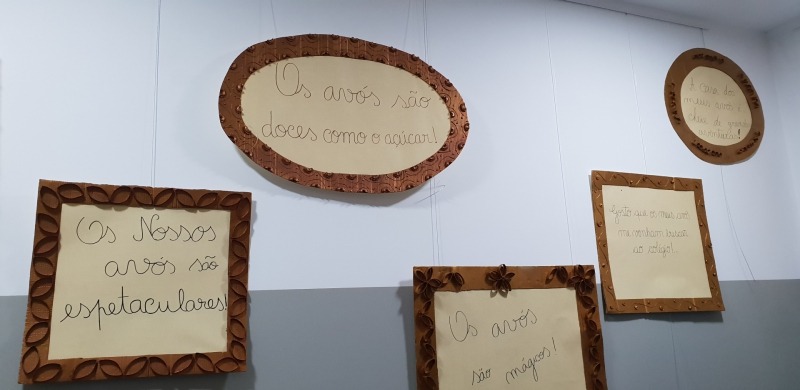 Os avós são
doces como o açúcar!
A casa dos
meus avós é
cheia de grande
aventura!
Os Nossos
avós são
espetaculares!
Gosto que o meus avós
me venham buscar
ao colégio!
Os avós
são mágicos!